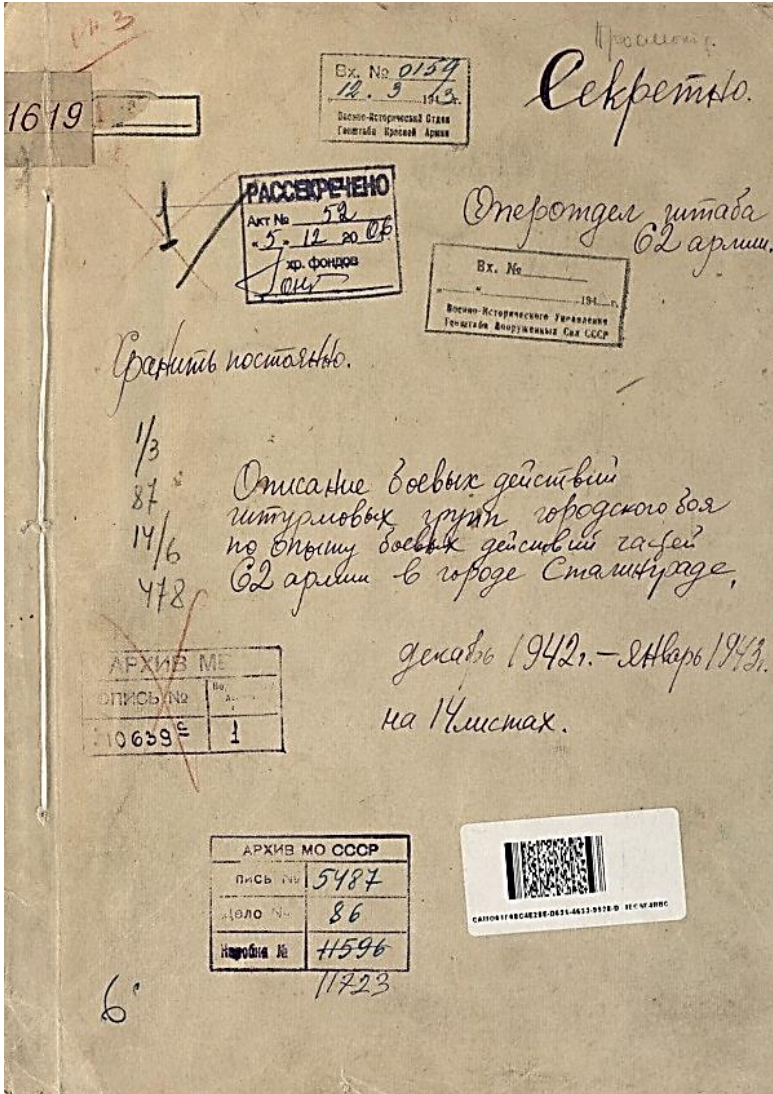 Вх. № 0159
12. 3 1943 г.
Военно-Исторический Отдел
Генштаба Красной Армии
Секретно.
1619
РАССЕКРЕЧЕНО
Акт № 52
"5" 12 2006
хр. фондов
1
Оперотдел штаба
62 армии.
Вх. №
" " 194 г.
Военно-Исторического Управления
Генштаба Вооруженных Сил СССР
Хранить постоянно.
1/3
87
14/6
478
Описание боевых действий
штурмовых групп городского боя
по опыту боевых действий частей
62 армии в городе Сталинграде,
декабрь 1942г. – январь 1943г.
на 14 листах.
АРХИВ М
ОПИСЬ №
10639с 1
АРХИВ МО СССР
пись № 5487
Дело № 86
Коробка № 11596
11723
6